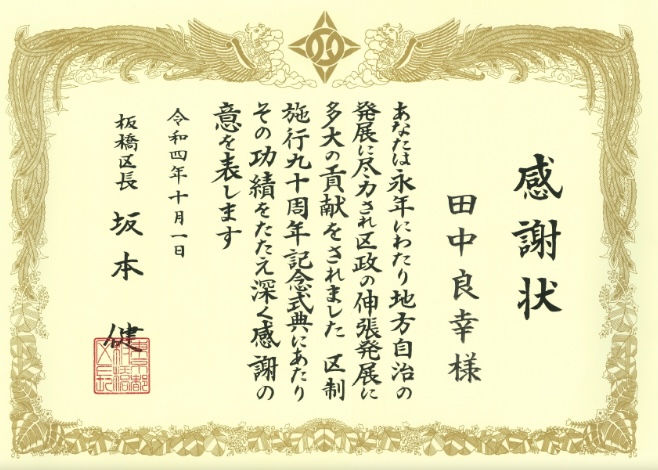 感謝状
田中良幸様
あなたは永年にわたり地方自治の
発展に尽力され区政の伸張発展に
多大の貢献をされました 区制
施行九十周年記念式典にあたり
その功績をたたえ深く感謝の
意を表します
令和四年十月一日
板橋区長 坂本 健
東京都板橋区長